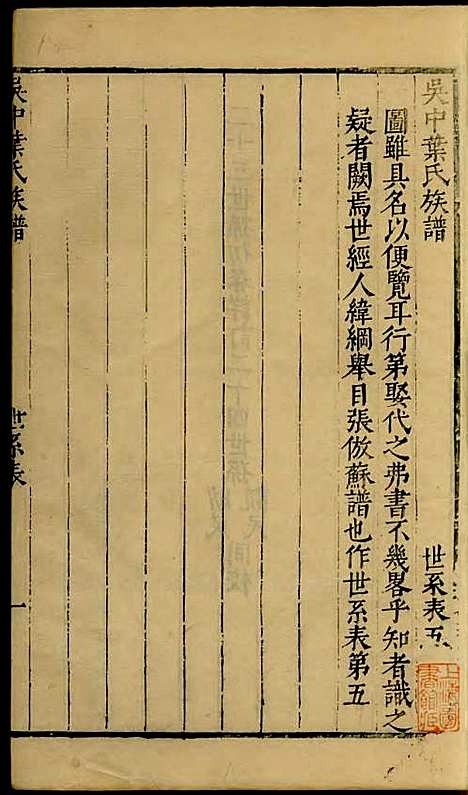 吳中葉氏族譜
世系表五
圖雖具名以便覽耳行第娶代之弗書不幾畧乎知者識之
疑者闕焉世經人緯綱舉目張倣蘇譜也作世系表第五
吳中葉氏族譜
世系表
一